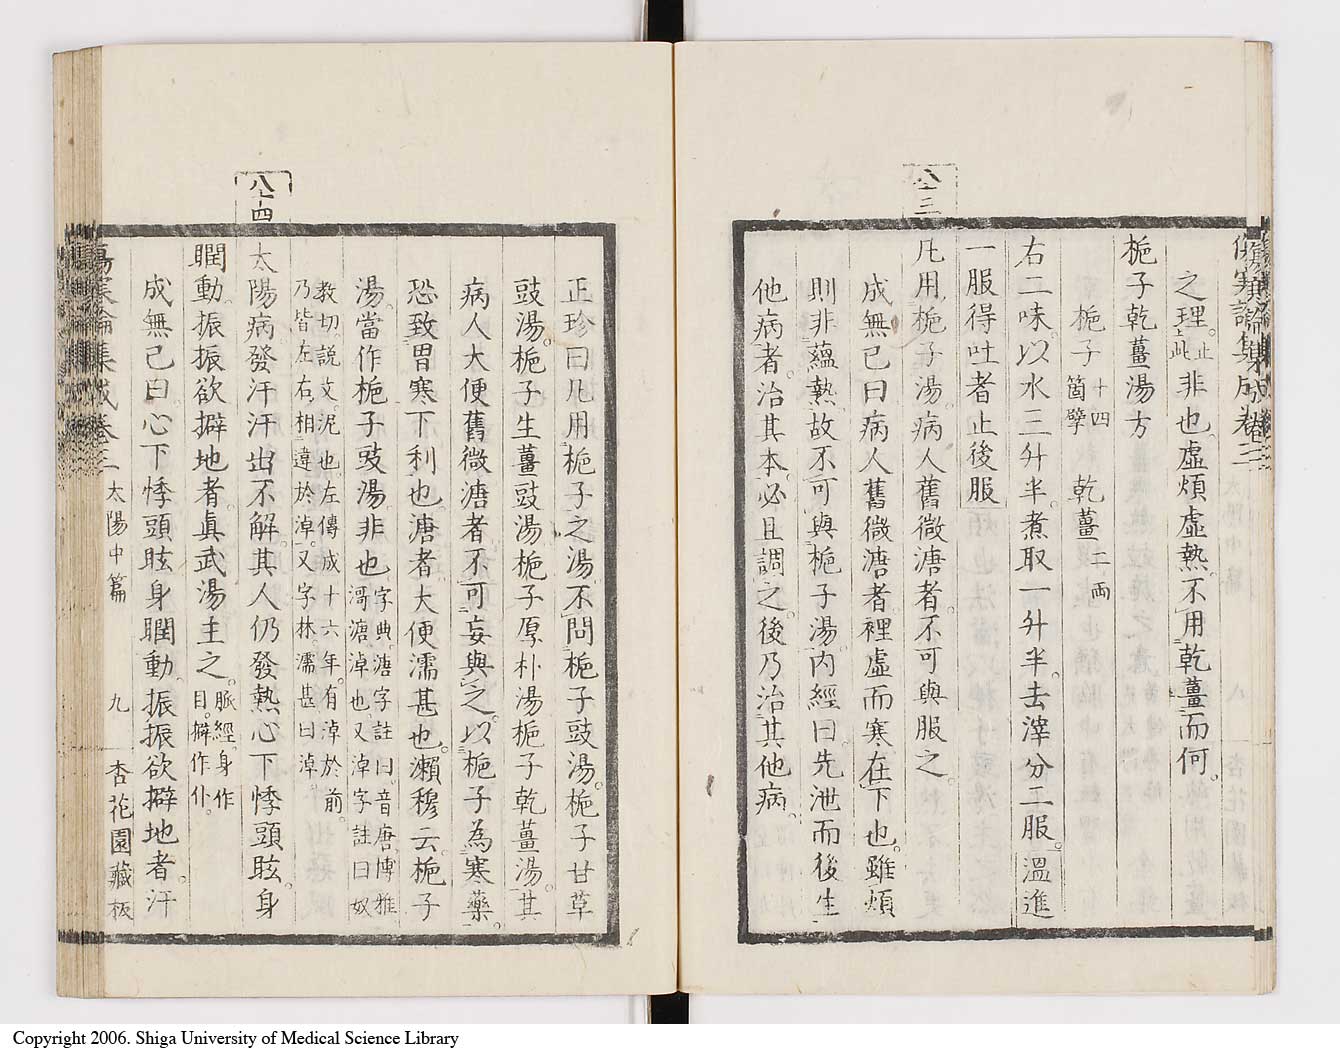 傷寒論集成卷三
之理。止此非也。虛煩虛熱。不用乾薑而何。
梔子乾薑湯方
梔子十四箇擘 乾薑二兩
右二味。以水三升半。煮取一升半。去滓分二服。溫進
一服得吐者止後服
八十三
凡用梔子湯。病人舊微溏者。不可與服之。
成無己曰病人舊微溏者裡虛而寒在下也。雖煩
則非蘊熱。故不可與梔子湯。內經曰先泄而後生
他病者。治其本。必且調之。後乃治其他病。
正珍曰凡用梔子之湯。不問梔子豉湯。梔子甘草
豉湯。梔子生薑豉湯梔子厚朴湯梔子乾薑湯。其
病人大便舊微溏者不可妄與之。以梔子為寒藥。
恐致胃寒下利也。溏者大便濡甚也。瀨穆云。梔子
湯。當作梔子豉湯非也。字典。溏字註曰。音唐。博雅。滒溏淖也。又淖字註曰奴
教切。說文泥也。左傳成十六年。有淖於前。乃皆左右相違於淖。又字林。濡甚曰淖
八十四
太陽病發汗汗出不解。其人仍發熱心下悸頭眩身
瞤動。振振欲擗地者。眞武湯主之。脈經。身作目。擗作仆。
成無己曰。心下悸頭眩身瞤動。振振欲擗地者。汗
傷寒論集成卷三 太陽中篇 九 杏花園藏板
Copyright 2006. Shiga University of Medical Science Library